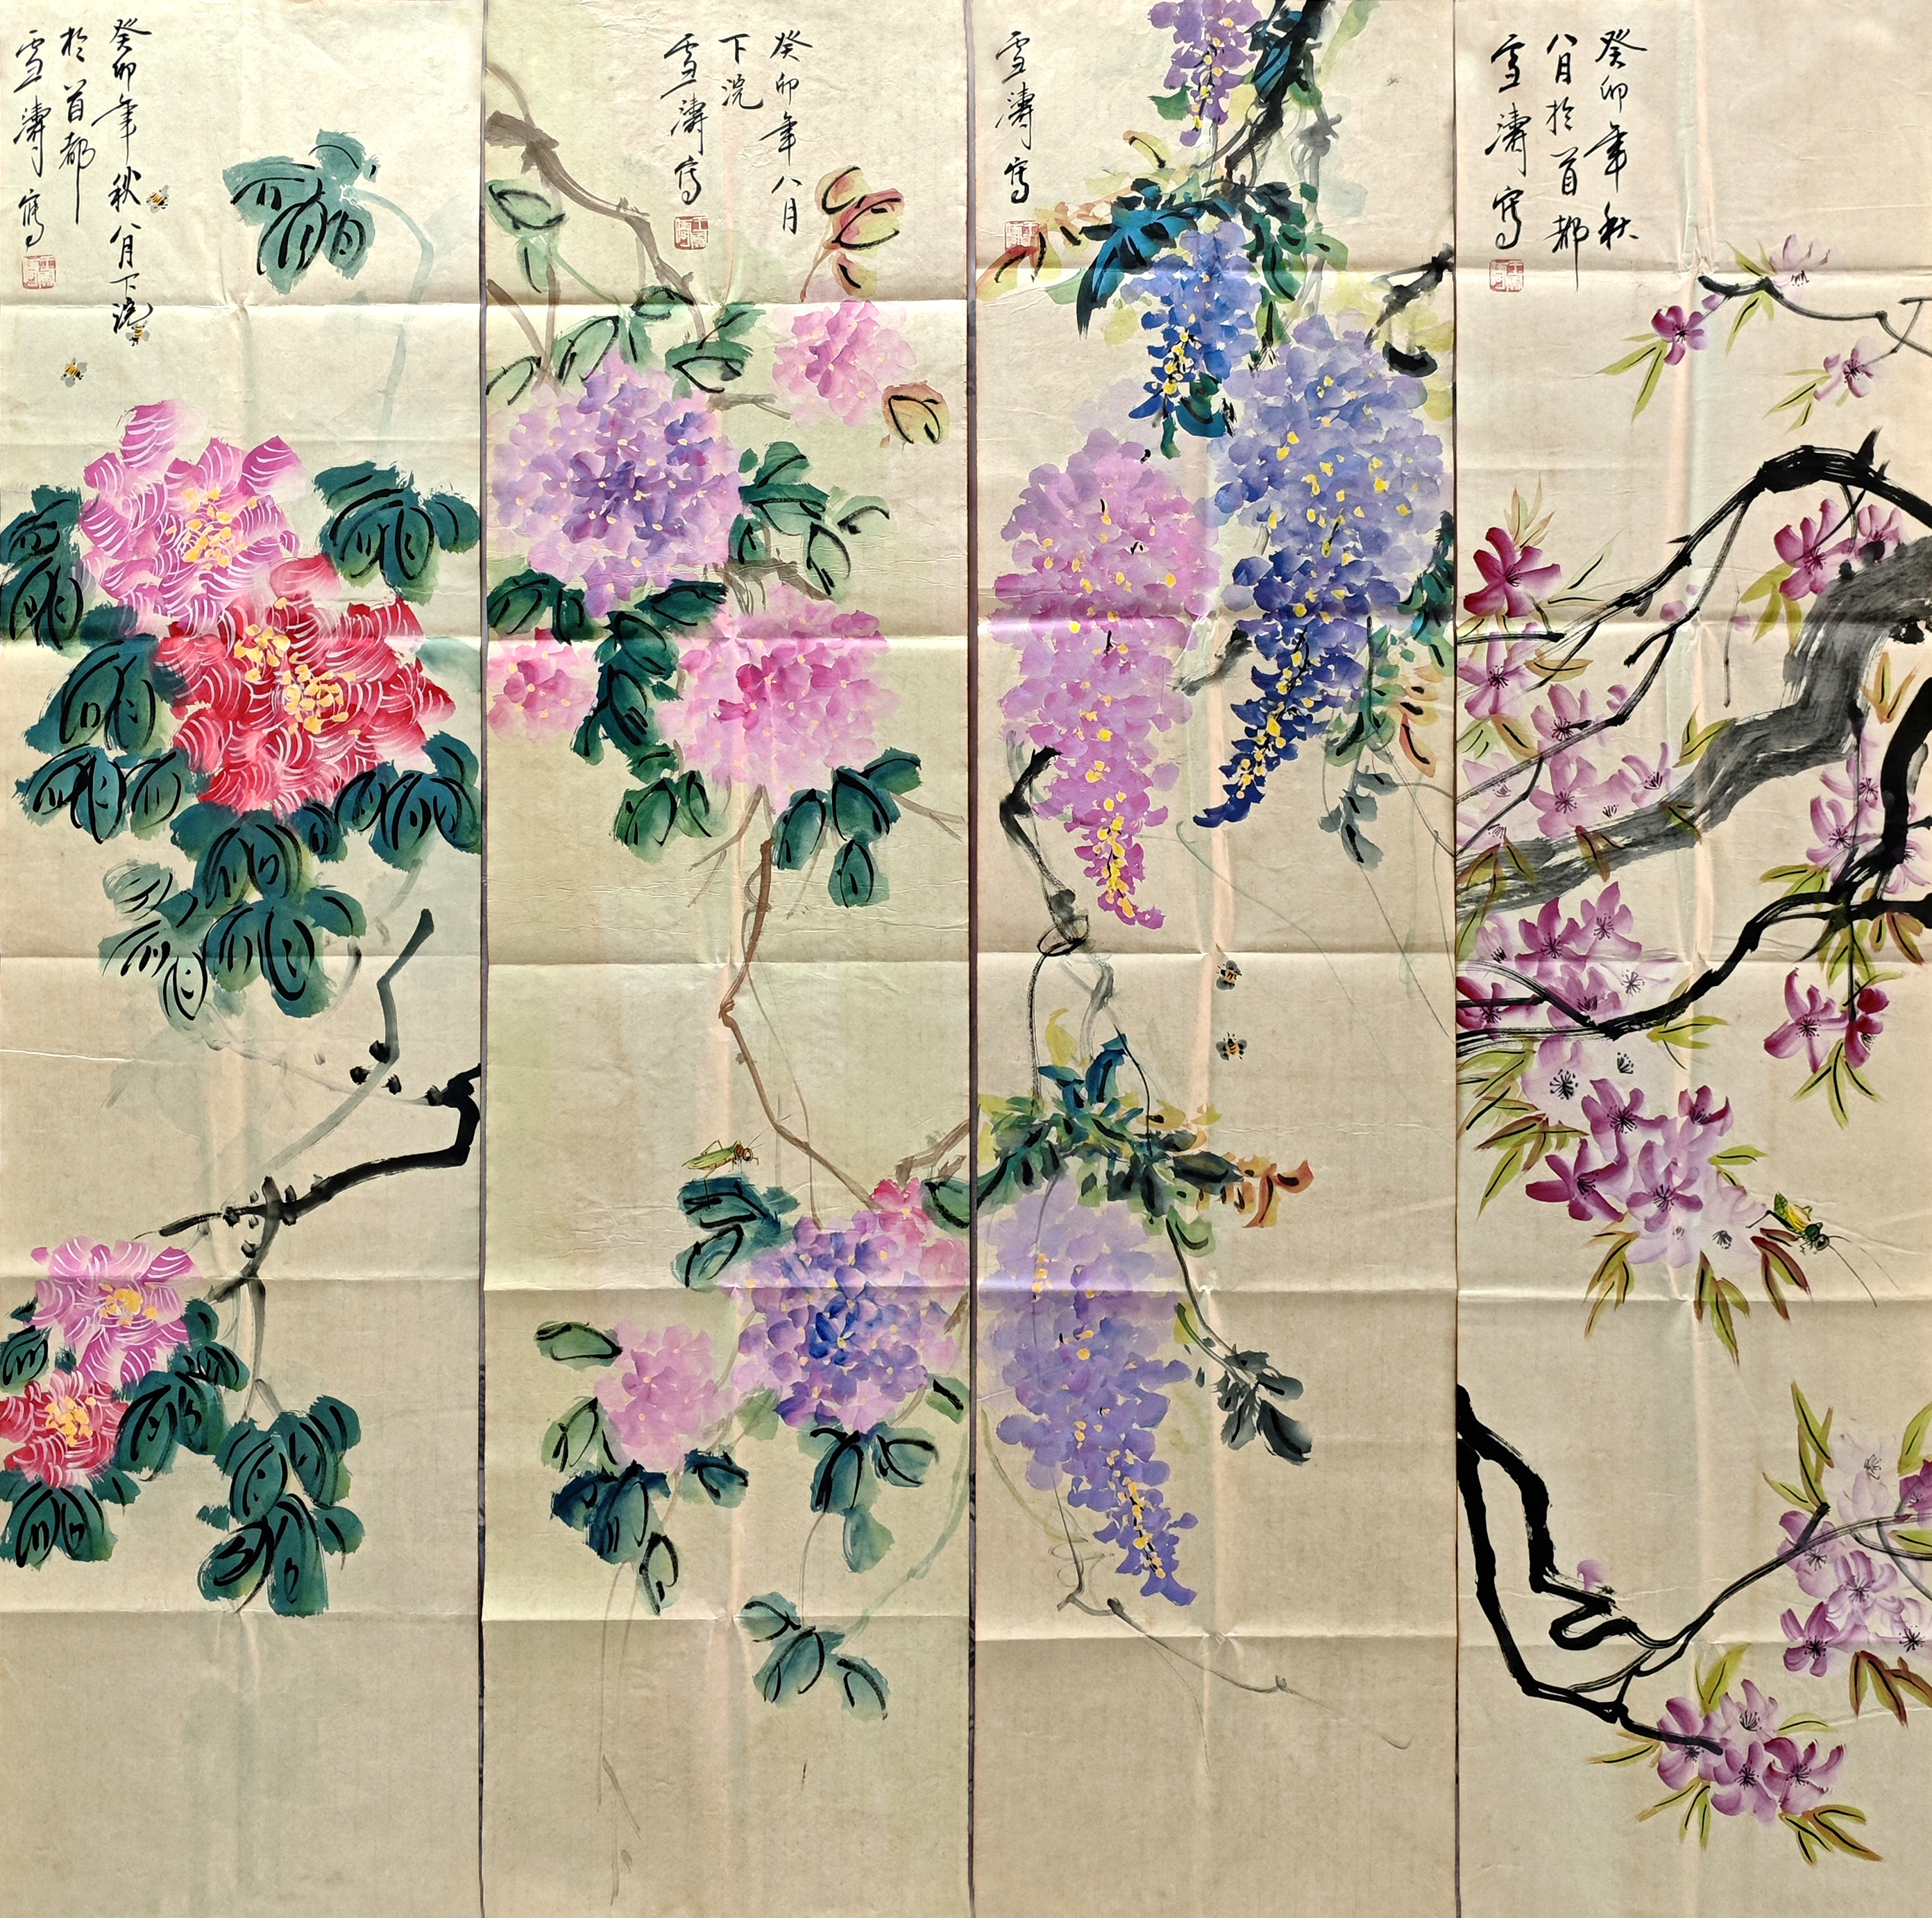 癸卯年秋八月下浣
於首都
雪濤寫
癸卯年八月
下浣
雪濤寫
雪濤寫
癸卯年秋
八月於首都
雪濤寫